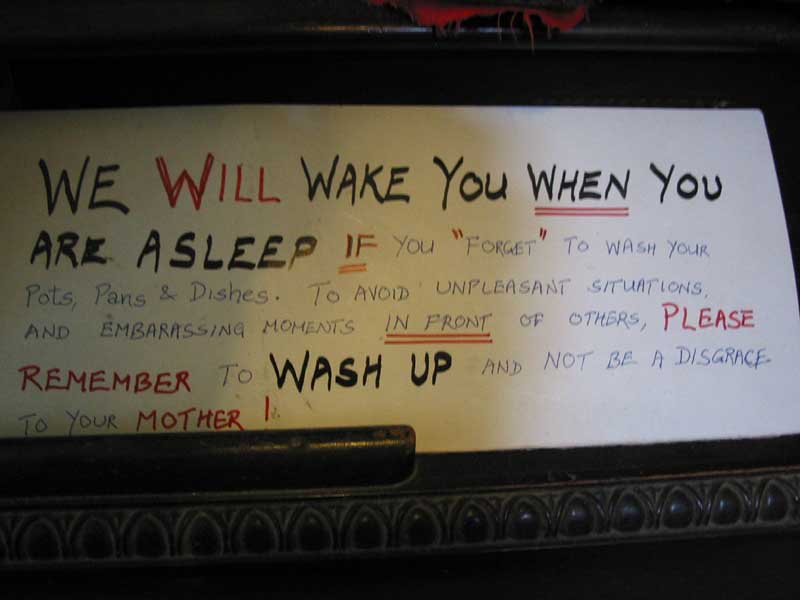 WE WILL WAKE YOU WHEN YOU
ARE ASLEEP IF YOU "FORGET" TO WASH YOUR
POTS, PANS & DISHES. TO AVOID UNPLEASANT SITUATIONS,
AND EMBARASSING MOMENTS IN FRONT OF OTHERS, PLEASE
REMEMBER TO WASH UP AND NOT BE A DISGRACE
TO YOUR MOTHER!